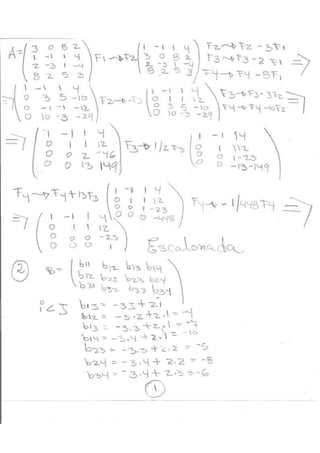 A= ( 3 0 8 2 / 1 -1 1 4 / 2 -3 1 -4 / 8 2 5 3 ) F1→F2 ( 1 -1 1 4 / 3 0 8 2 / 2 -3 1 -4 / 8 2 5 3 ) F2→F2-3F1 F3→F3-2F1 F4→F4-8F1 ⇒
⇒ ( 1 -1 1 4 / 0 3 5 -10 / 0 -1 -1 -12 / 0 10 -3 -29 ) F2→-F3 ( 1 -1 1 4 / 0 1 1 12 / 0 3 5 -10 / 0 10 -3 -29 ) F3→F3-3F2 F4→F4-10F2 ⇒
⇒ ( 1 -1 1 4 / 0 1 1 12 / 0 0 2 -46 / 0 0 13 149 ) F3→1/2F3 ( 1 -1 1 4 / 0 1 1 12 / 0 0 1 -23 / 0 0 -13 -149 )
F4→F4+13F3 ( 1 -1 1 4 / 0 1 1 12 / 0 0 1 -23 / 0 0 0 -448 ) F4→-1/448F4 ⇒
⇒ ( 1 -1 1 4 / 0 1 1 12 / 0 0 0 -23 / 0 0 0 1 ) Escalonada
2 B= ( b11 b12 b13 b14 / b12 b22 b23 b24 / b31 b32 b33 b34 )
i<J bij= -3J+2i
b12= -3.2+2.1=-4
b13= -3.3+2.1=-7
b14= -3.4+2.1=-10
b23= -3.3+2.2=-5
b24= -3.4+2.2=-8
b34= -3.4+2.3=-6
1